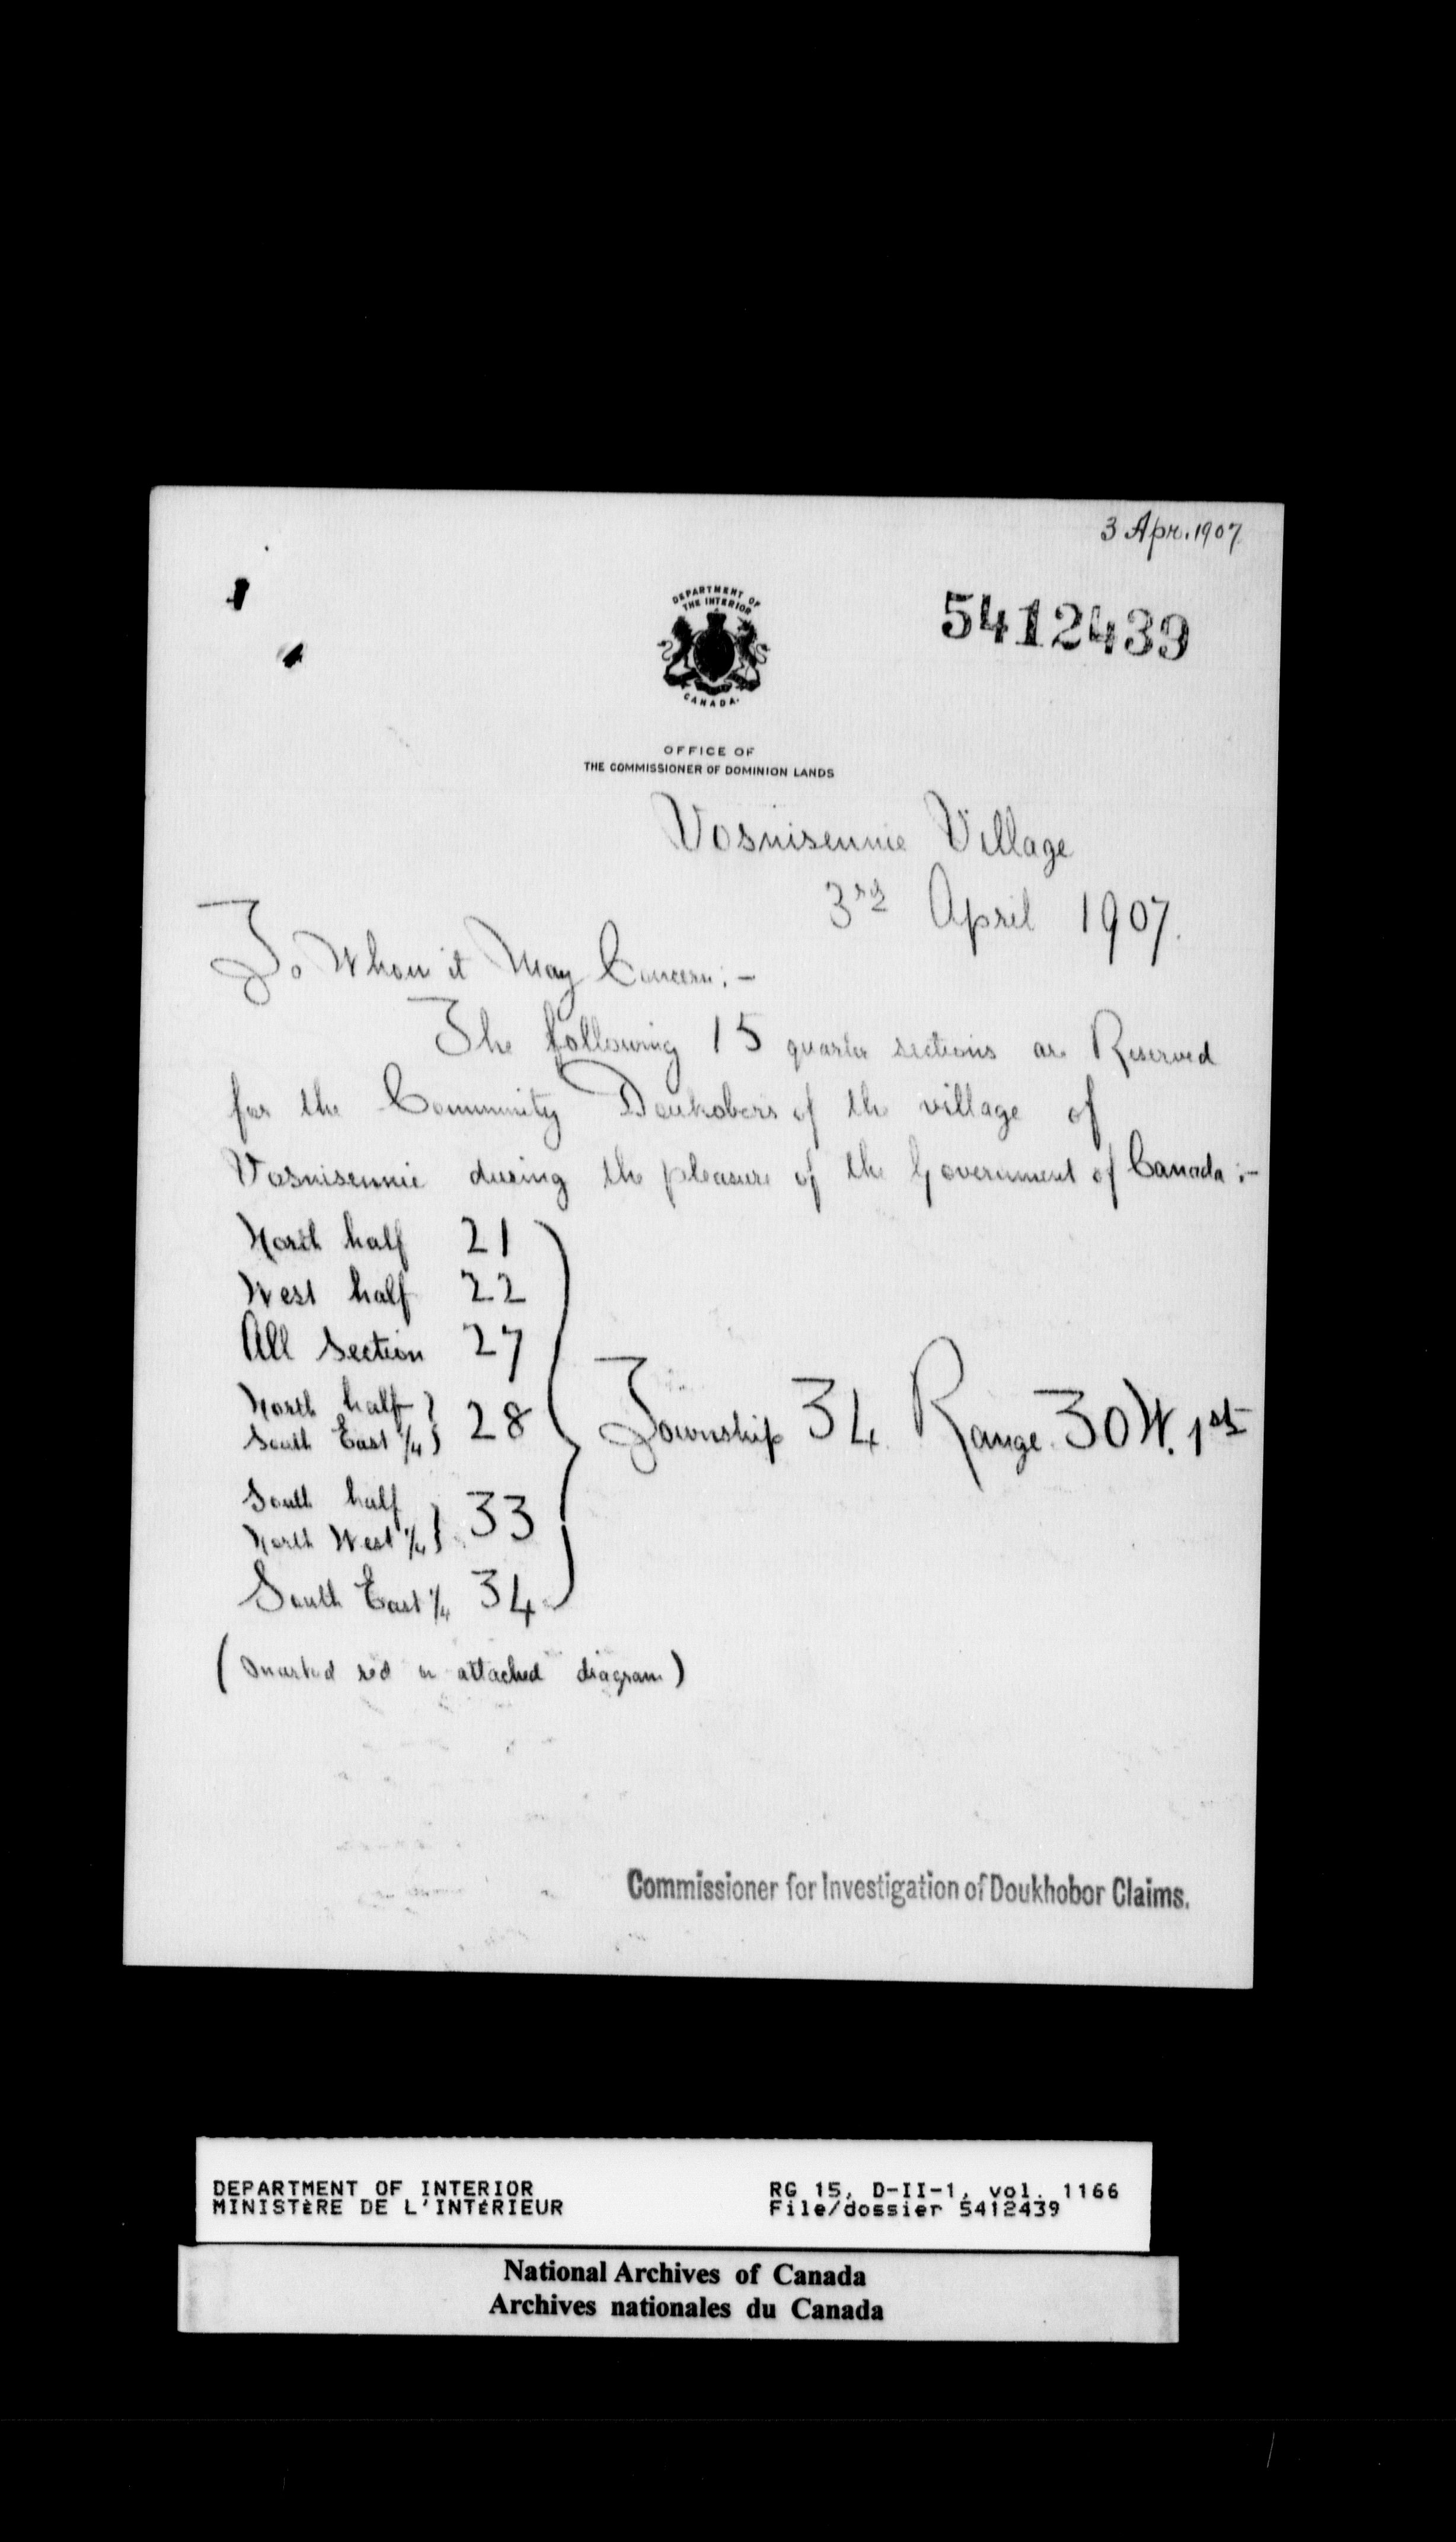 3 Apr. 1907.
5412439
DEPARTMENT OF
THE INTERIOR
CANADA.
OFFICE OF
THE COMMISSIONER OF DOMINION LANDS
Vosnisennie Village
3rd April 1907.
To Whom it May Concern:-
The following 15 quarter sections are Reserved
for the Community Doukobors of the village of
Vosnisennie during the pleasure of the Government of Canada:-
North half 21
West half 22
All Section 27
North half
South East 1/4 } 28
Township 34 Range 30 W. 1st
South half
North West 1/4 } 33
South East 1/4 34
(marked red on attached diagram)
Commissioner for Investigation of Doukhobor Claims.
DEPARTMENT OF INTERIOR RG 15, D-II-1, vol. 1166
MINISTÈRE DE L'INTÉRIEUR File/dossier 5412439
National Archives of Canada
Archives nationales du Canada